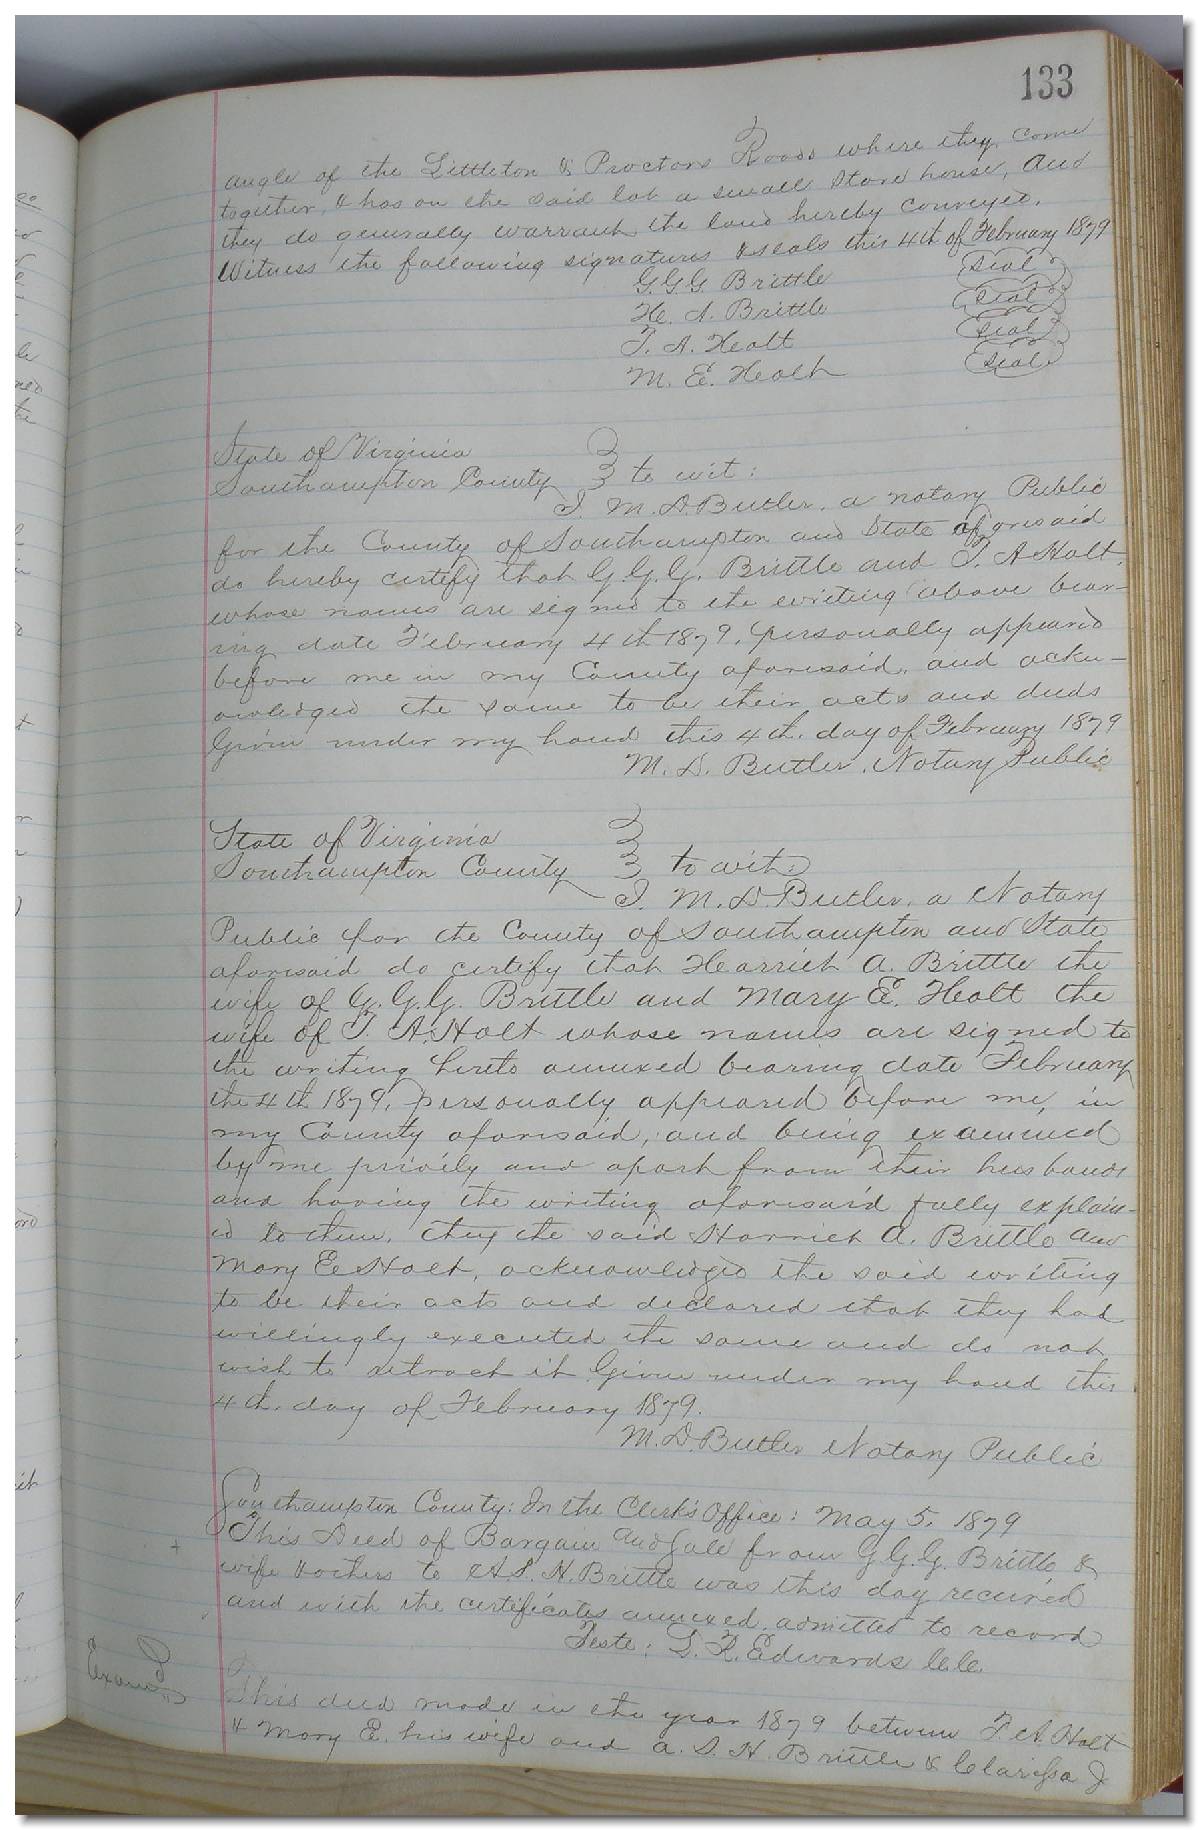 133
angle of the Littleton & Proctors Roads where they come
together, & has on the said lot a small Store house, and
they do generally warrant the land hereby conveyed.
Witness the following signatures & seals this 4th of February 1879
G.G.G. Brittle Seal
H. A. Brittle Seal
T. A. Holt Seal
M. E. Holt Seal
State of Virginia
Southampton County to wit:
I. M. D. Butler, a notary Public
for the County of Southampton and State aforesaid
do hereby certify that G.G.G. Brittle and T. A Holt,
whose names are signed to the writing above bear-
ing date February 4th 1879, personally appeared
before me in my County aforesaid, and ackn-
owledged the same to be their acts and deeds
Given under my hand this 4th. day of February 1879
M. D. Butler, Notary Public
State of Virginia
Southampton County to wit:
I. M. D. Butler, a Notary
Public for the County of Southampton and State
aforesaid do certify that Harriet A. Brittle the
wife of G.G.G. Brittle and Mary E. Holt the
wife of T. A. Holt whose names are signed to
the writing hereto annexed bearing date February
the 4th 1879, personally appeared before me, in
my County aforesaid, and being examined
by me privily and apart from their husbands
and having the writing aforesaid fully explain-
ed to them, they the said Harriet A. Brittle and
Mary E Holt, acknowledged the said writing
to be their acts and declared that they had
willingly executed the same and do not
wish to retract it Given under my hand this
4th. day of February 1879.
M. D. Butler Notary Public
Southampton County: In the Clerk's Office: May 5, 1879
This Deed of Bargain and Sale from G.G.G. Brittle &
wife & others to A.S.N. Brittle was this day received
and with the certificates annexed admitted to record
Teste: L. R. Edwards C.C.
Examd
This deed made in the year 1879 between T. A. Holt
& Mary E. his wife and A. S. N. Brittle & Clarissa J